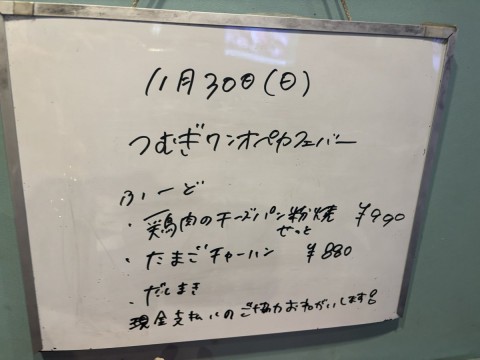 11月30日(日)
つむぎワンオペカフェバー
ふーど
・鶏肉のチーズパン粉焼 ¥990
せっと
・たまごチャーハン ¥880
・だしまき
現金支払いのご協力おねがいします。